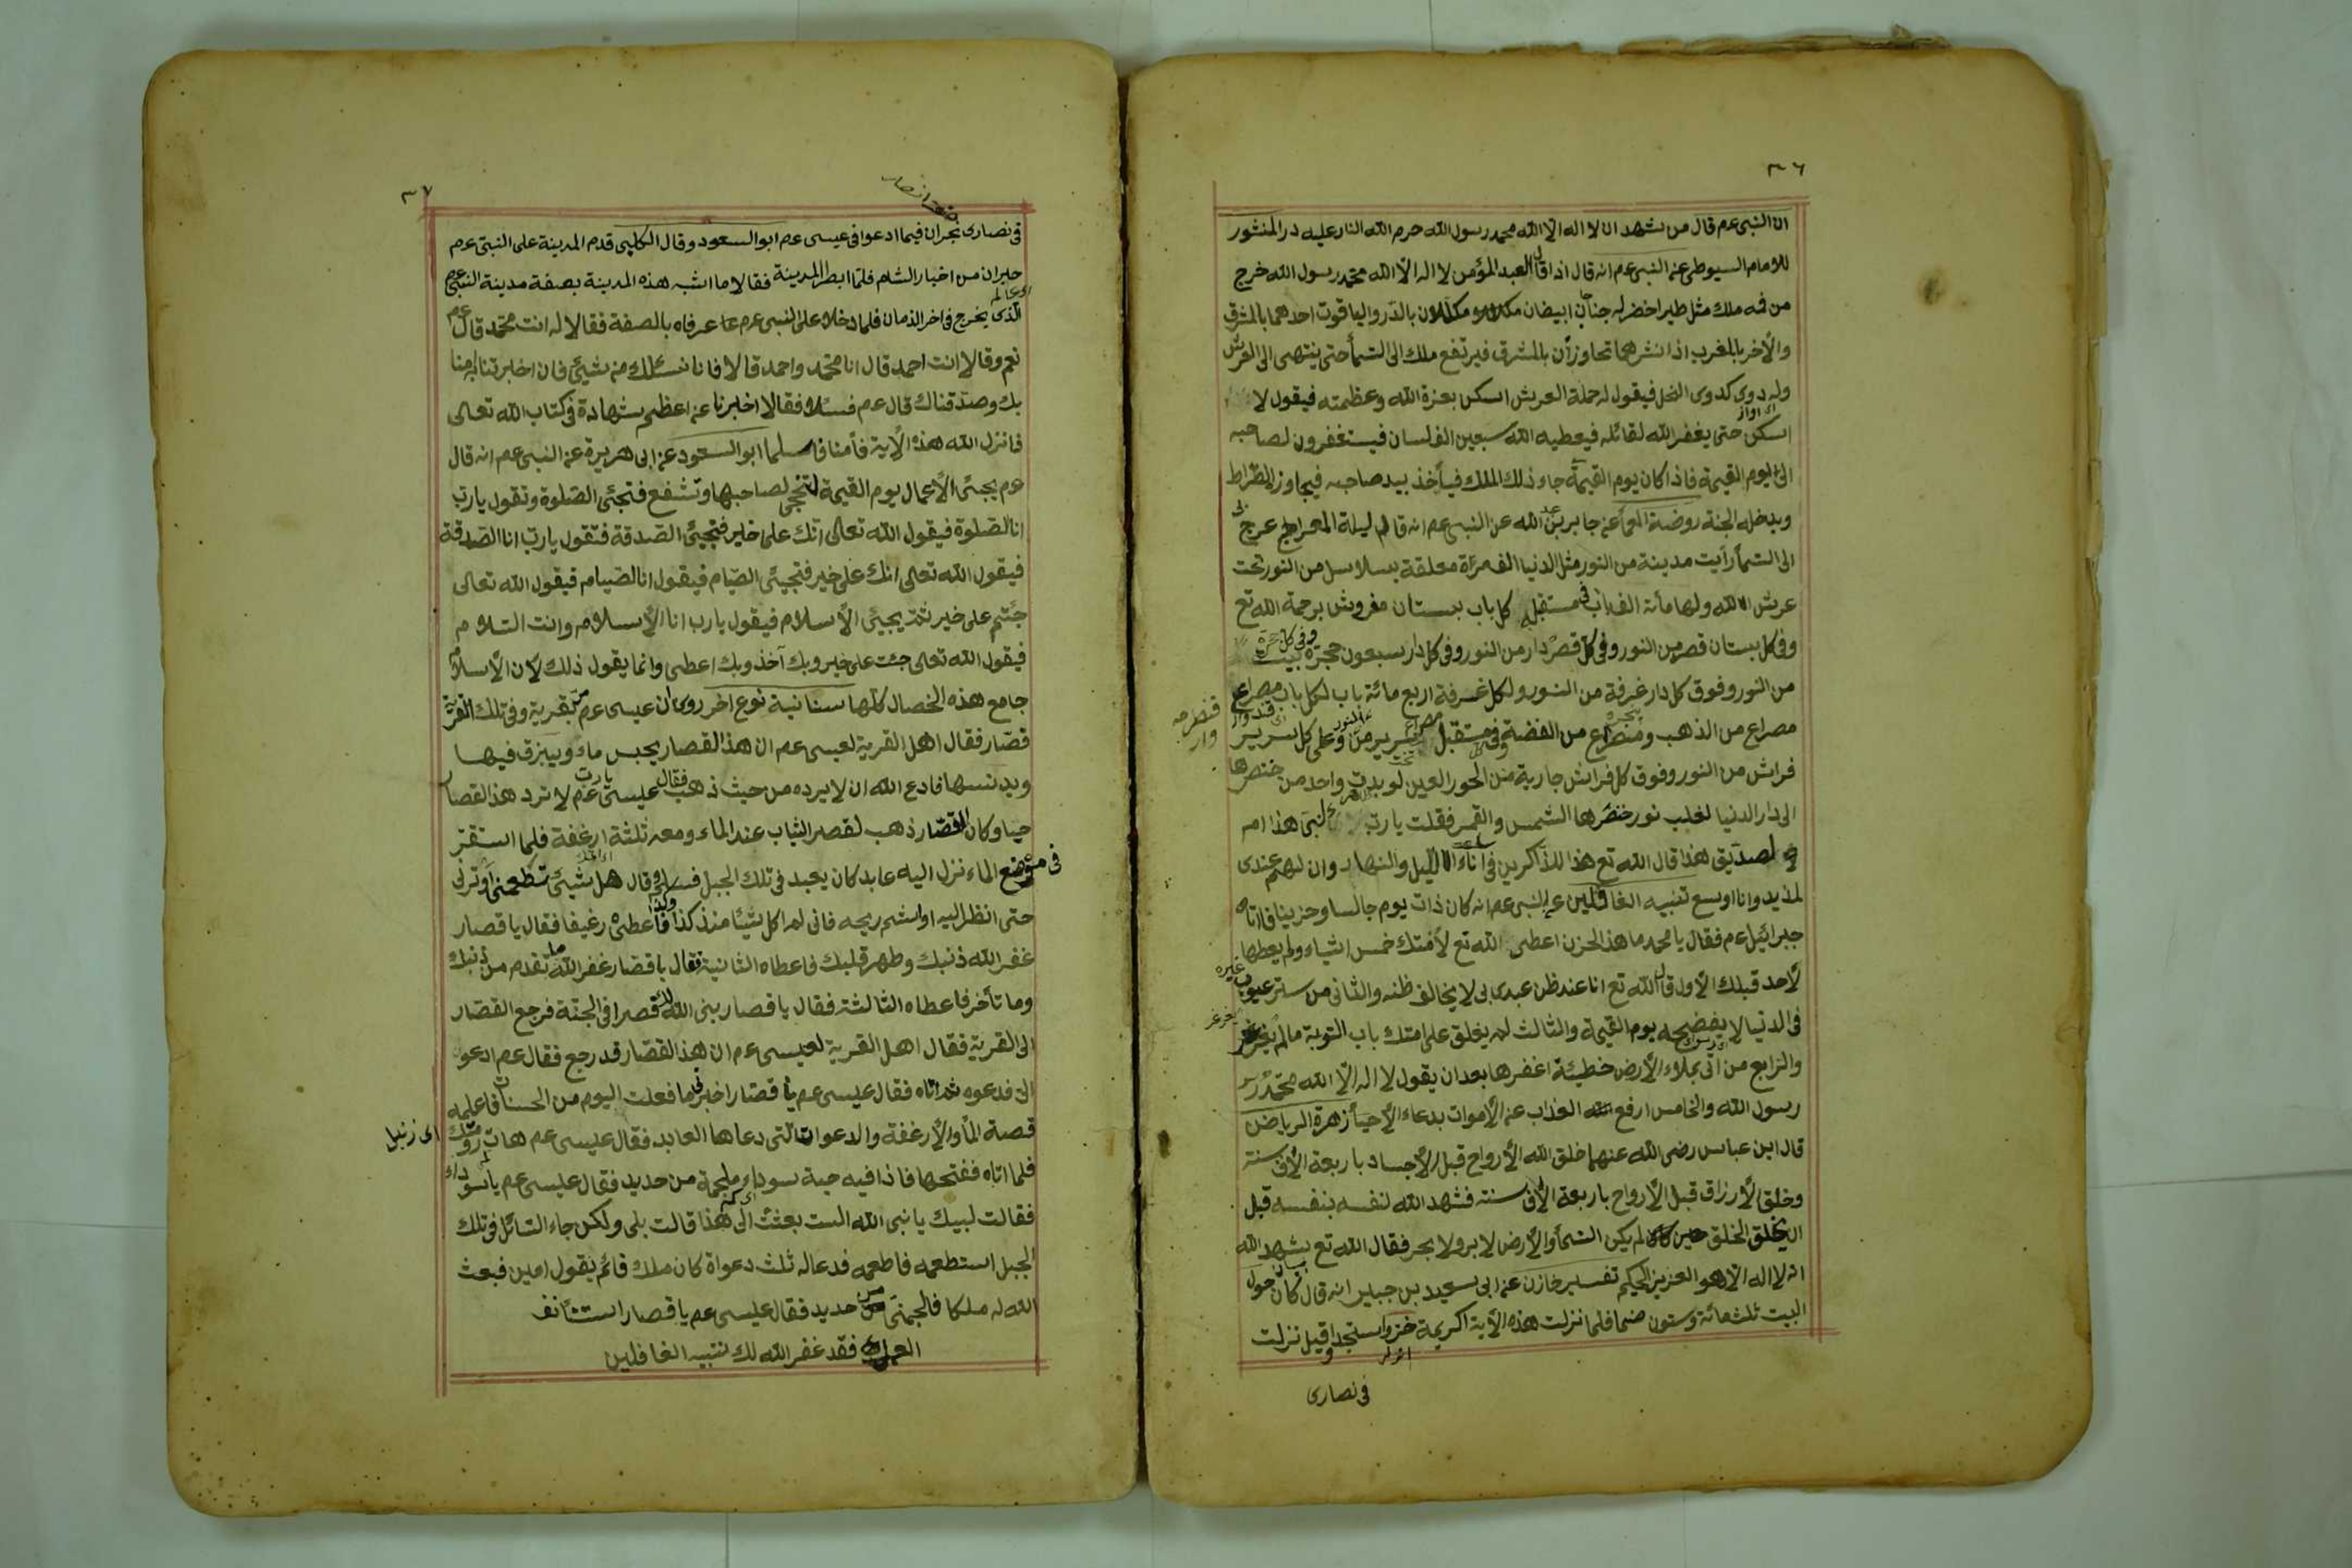 ٣٦
ان النبى عم قال من شهد ان لا اله الا الله محمد رسول الله حرم الله النار عليه در المنثور
للامام السيوطى عن النبى عم انه قال اذا قال العبد المؤمن لا اله الا الله محمد رسول الله خرج
من فمه ملك مثل طير اخضر له جناحان ابيضان مكللان بالدر والياقوت احدهما بالمشرق
والأخر بالمغرب اذا نشرهما تجاوزان بالمشرق فيرتفع ملك الى السمأ حتى ينتهى الى العرش
وله دوى كدوى النحل فيقول له حملة العرش اسكن بعزة الله وعظمته فيقول لا
اى اواز
اسكن حتى يغفر الله لقائله فيعطيه الله سبعين الف لسان فيستغفرون لصاحبه
الى يوم القيمة فاذا كان يوم القيمة جاء ذلك الملك فيأخذ بيد صاحبه فيجاوز الصراط
ويدخله الجنة روضة العلمأ عن جابر بن عبد الله عن النبى عم انه قال لم ليلة المعراج عرج بى
الى السمأ رأيت مدينة من النور مثل الدنيا الف مرّة معلقة بسلاسل من النور تحت
عرش الله ولها مأئة الف باب فى مستقبل كل باب بستان مفروش برحمة الله تع
وفى كل بستان قصر من النور وفى كل قصر دار من النور وفى كل دار سبعون حجرة وفى كل حجرة بيت
من النور وفوق كل دار غرفة من النور ولكل غرفة اربع مائة باب لكل باب مصراع
مصراع من الذهب ومصراع من الفضة وفى مستقبل كل سرير من النور وعلى كل سرير
فراش من النور وفوق كل فراش جارية من الحور العين لو بدت واحد من خنصرها
الى دار الدنيا لغلب نور خنصرها الشمس والقمر فقلت يا رب لنبى هذا ام
لصديق هذا قال الله تع هذا للذاكرين فى اناء الليل والنهار وان لهم عندى
لمزيد وانا اوسع تنبيه الغافلين عن النبى عم انه كان ذات يوم جالسا وحزينا فاتاه
جبرائيل عم فقال يا محمد ما هذا الحزن اعطى الله تع لأمتك خمس اشياء ولم يعطها
لأحد قبلك الأول قال الله تع انا عند ظن عبدى بى لا يخالف ظنه والثانى من ستر عيوب غيره
فى الدنيا لا يفضحه يوم القيمة والثالث لم يغلق على امتك باب التوبة ما لم يغرغر
والرابع من اتى بملاء الأرض خطيئة اغفرها بعد ان يقول لا اله الا الله محمد
رسول الله والخامس ارفع العذاب عن الأموات بدعاء الأحيأ زهرة الرياض
قال ابن عباس رضى الله عنهما خلق الله الأرواح قبل الأجساد باربعة الاف سنة
وخلق الأرزاق قبل الأرواح باربعة الاف سنة فشهد الله لنفسه بنفسه قبل
ان يخلق الخلق حين كان لم يكن السمأ والأرض لا بر ولا بحر فقال الله تع شهد الله
انه لا اله الا هو العزيز الحكيم تفسير خازن عن ابى سعيد بن جبير انه قال كان حول
البيت ثلثمائة وستون صنما فلما نزلت هذه الأية الكريمة خروا سجدا وقيل نزلت
فى نصارى
٣٧
فى نصارى نجران فيما ادعوا فى عيسى عم ابو السعود وقال الكلبى قدم المدينة على النبى عم
حبران من احبار الشام فلما ابصرا المدينة فقالا ما اشبه هذه المدينة بصفة مدينة النبى عم
الذى يخرج فى اخر الزمان فلما دخلا على النبى عم عرفاه بالصفة فقالا له انت محمد قال عم
نعم وقالا انت احمد قال انا محمد واحمد قالا فانا نسئلك من شيئ فان اخبرتنا امنا
بك وصدقناك قال عم فسئلا فقالا اخبرنا عن اعظم شهادة فى كتاب الله تعالى
فانزل الله هذه الأية فأمنا فاسلما ابو السعود عن ابى هريرة عن النبى عم انه قال
عم يجيئ الأعمال يوم القيمة لتنجى لصاحبها وتشفع فتجئ الصلوة وتقول يا رب
انا الصلوة فيقول الله تعالى انك على خير فتجيئ الصدقة فتقول يا رب انا الصدقة
فيقول الله تعالى انك على خير فتجيئ الصيام فيقول انا الصيام فيقول الله تعالى
جئتم على خير ثم يجيئ الأسلام فيقول يا رب انا الأسلام وانت السلام
فيقول الله تعالى جئت على خير وبك آخذ وبك اعطى وانما يقول ذلك لأن الأسلام
جامع هذه الخصال كلها سنانية نوع اخر روى ان عيسى عم مر بقرية وفى تلك القرية
قصار فقال اهل القرية لعيسى عم ان هذا القصار يحبس ماء ويبزق فيها
ويدنسها فادع الله ان لا يرده من حيث ذهب فقال عيسى عم يا رب لا ترد هذا القصار
حيا وكان القصار ذهب لقصر الثياب عند الماء ومعه ثلثة ارغفة فلما استقر
فى موضع الماء نزل اليه عابد كان يعبد فى تلك الجبل فسلم وقال هل شيئ تطعمنى او ترنى
حتى انظر اليه او اشم ريحه فانى لم اكل شيئا منذ كذا وكذا فاعطى رغيفا فقال يا قصار
غفر الله ذنبك وطهر قلبك فاعطاه الثانية فقال يا قصار غفر الله ما تقدم من ذنبك
وما تأخر فاعطاه الثالثة فقال يا قصار بنى الله لك قصرا فى الجنة فرجع القصار
الى القرية فقال اهل القرية لعيسى عم ان هذا القصار قد رجع فقال عم ادعو
الى فدعوه ثم اتاه فقال عيسى عم يا قصار اخبرنى ما فعلت اليوم من الحسنات فاعلمه
قصة المأ والأرغفة والدعوات التى دعاها العابد فقال عيسى عم هات رزمتك
اى زنبل
فلما اتاه ففتحها فاذا فيه حية سوداء ملجمة من حديد فقال عيسى عم يا سوداء
فقالت لبيك يا نبى الله الست بعثت الى هذا قالت بلى ولكن جاء السائل فى تلك
الجبل استطعمه فاطعمه فدعا له ثلث دعواة كان ملك قائم يقول امين فبعث
الله له ملكا فالجمنى من حديد فقال عيسى عم يا قصار استئنف
العمل فقد غفر الله لك تنبيه الغافلين